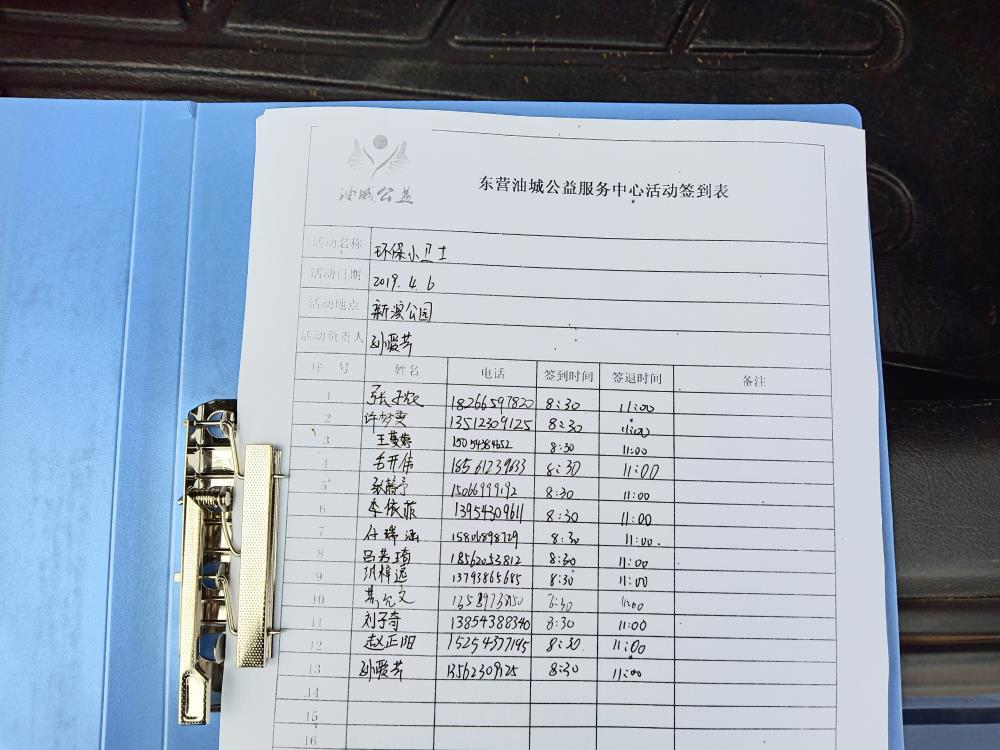 油城公益
东营油城公益服务中心活动签到表
活动名称 环保小卫士
活动日期 2019.4.6
活动地点 新滨公园
活动负责人 孙爱芳
序号 姓名 电话 签到时间 签退时间 备注
1 18266597820 8:30 11:00
2 许梦雯 13512309125 8:30 11:00
3 王蔓婷 8:30 11:00
4 毛开伟 18561239633 8:30 11:00
5 15066999192 8:30 11:00
6 李依菲 13954309611 8:30 11:00
7 付瑞涵 15806898729 8:30 11:00
8 吕若琦 18562053812 8:30 11:00
9 13793865685 8:30 11:00
10 8:30 11:00
11 刘子奇 13854388340 8:30 11:00
12 赵正阳 15254377195 8:30 11:00
13 孙爱芳 13562309125 8:30 11:00
14
15
16